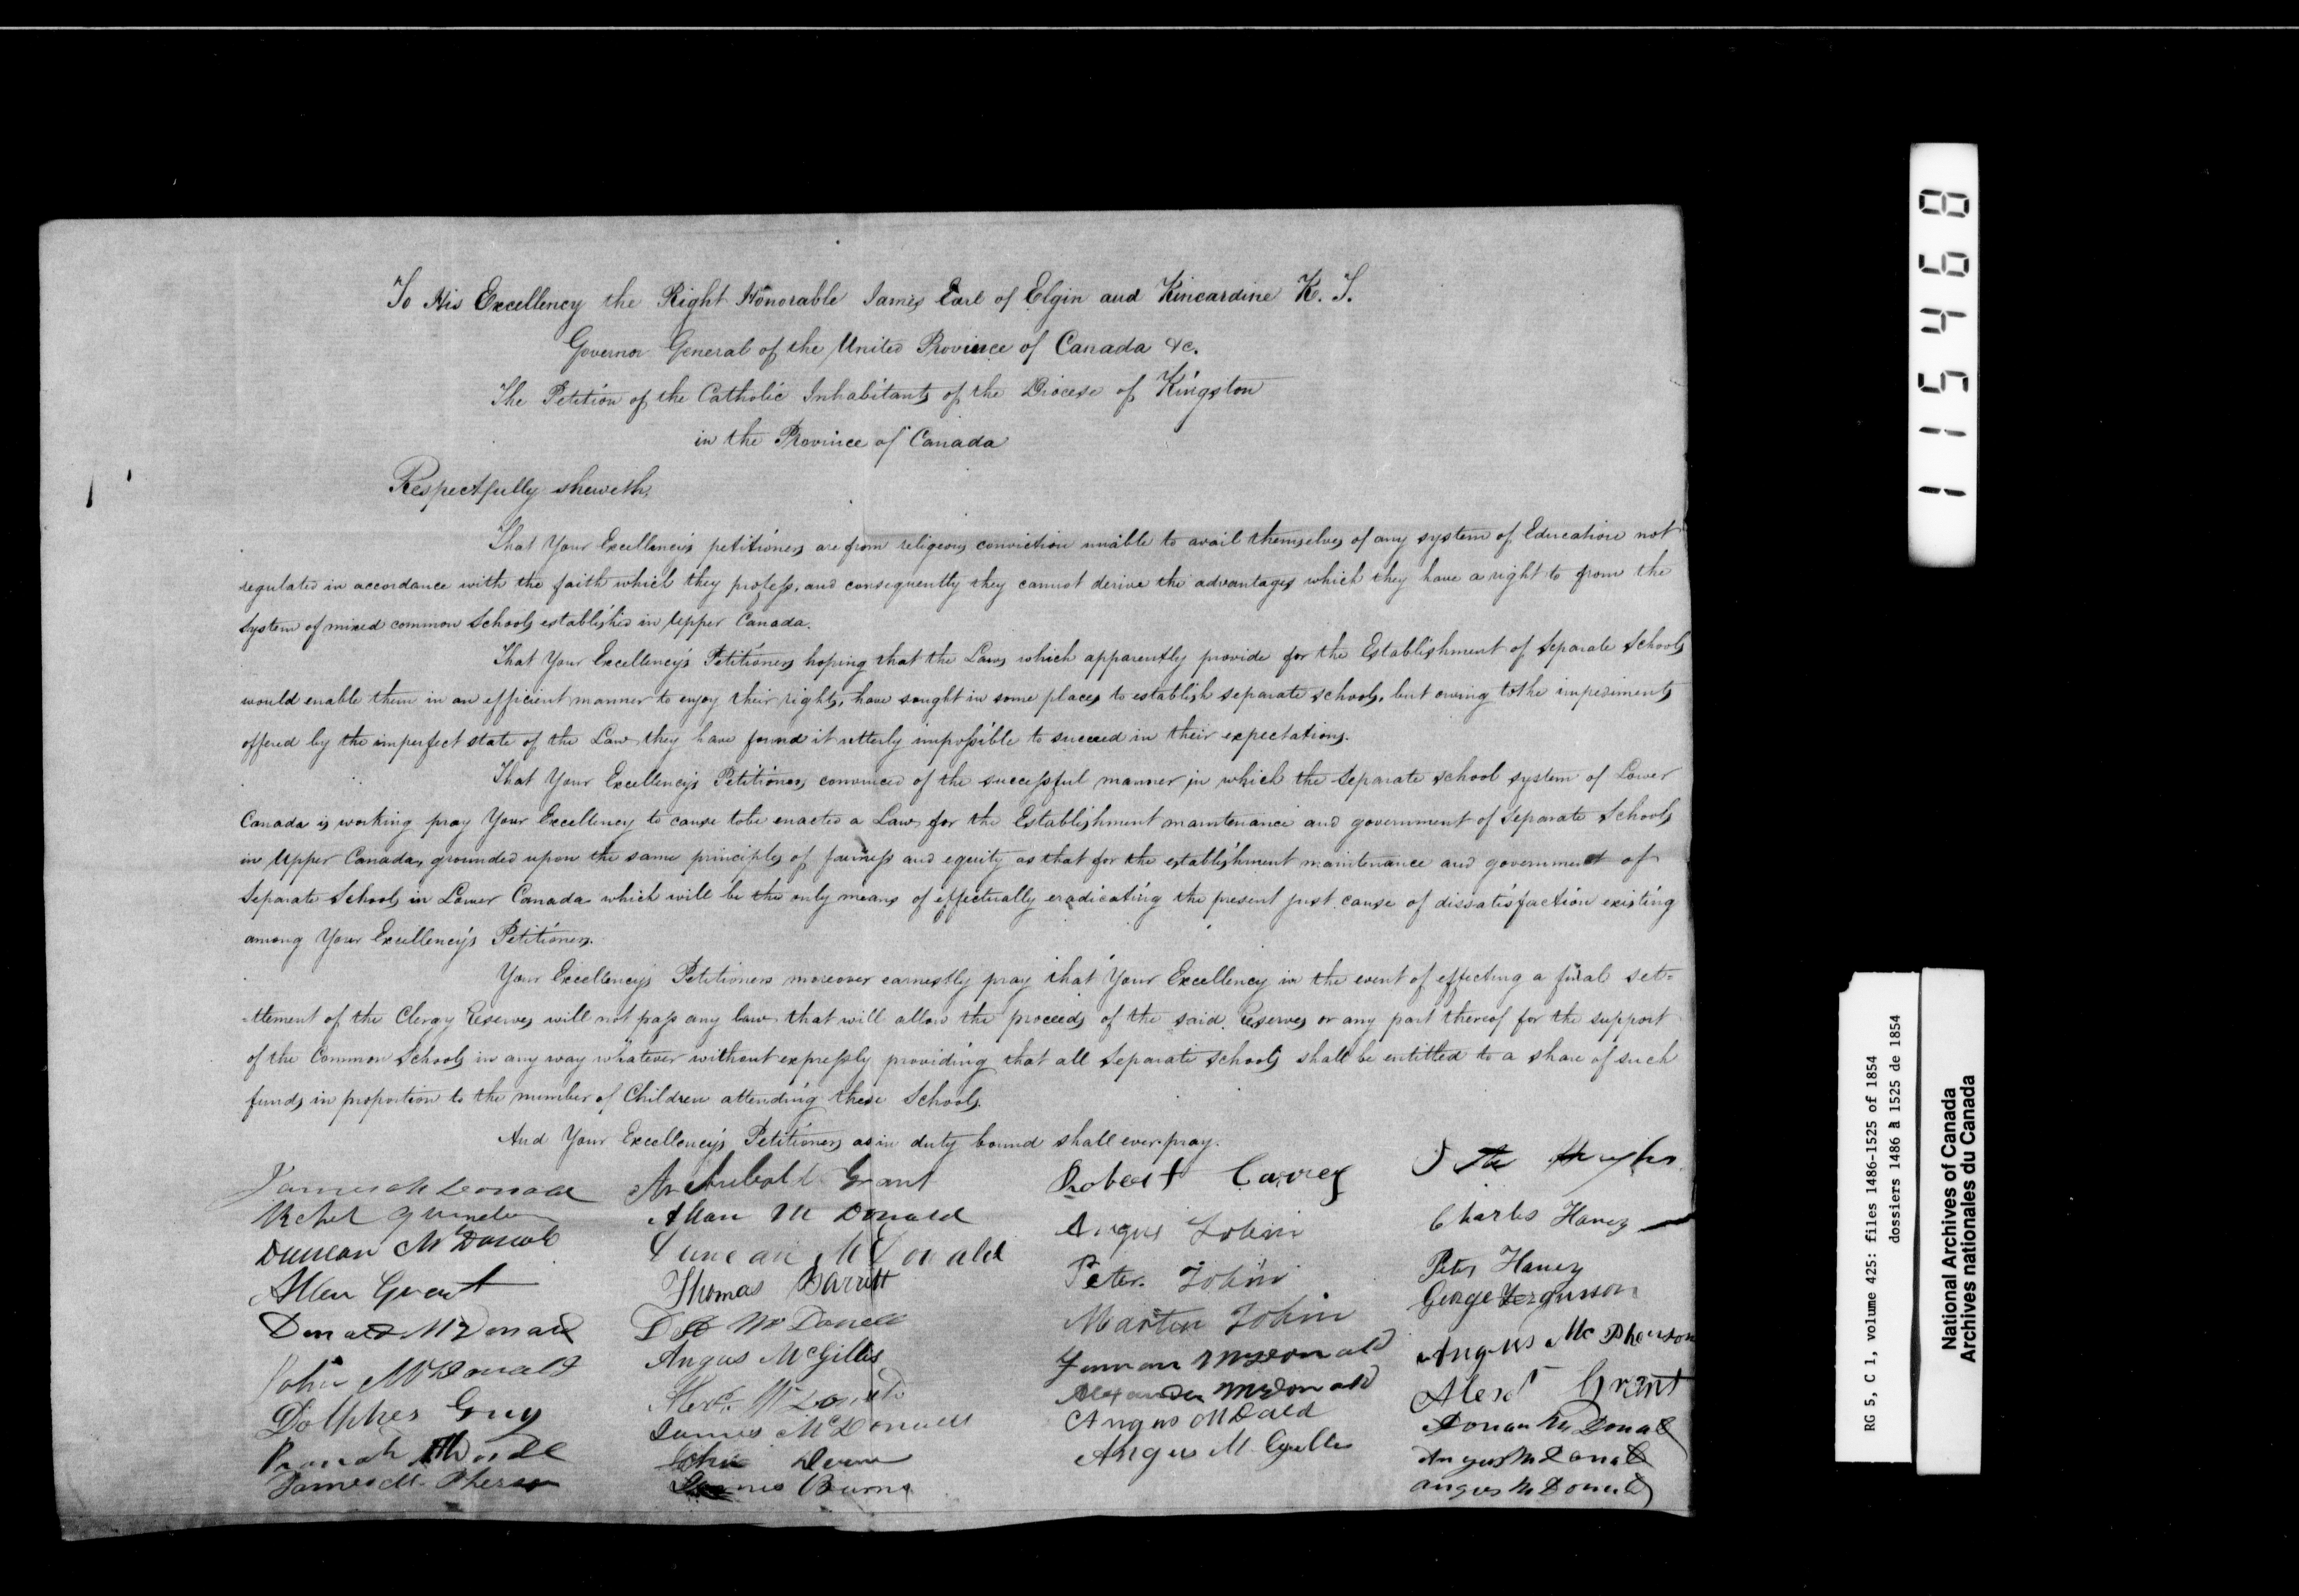 To His Excellency the Right Honorable James Earl of Elgin and Kincardine K. T.
Governor General of the United Province of Canada &c.
The Petition of the Catholic Inhabitants of the Diocese of Kingston
in the Province of Canada
Respectfully sheweth,
That Your Excellency's petitioners are from religious conviction unable to avail themselves of any system of Education not
regulated in accordance with the faith which they profess, and consequently they cannot derive the advantages which they have a right to from the
System of mixed common Schools established in Upper Canada.
That Your Excellency's Petitioners hoping that the Laws which apparently provide for the Establishment of Separate Schools
would enable them in an efficient manner to enjoy their rights, have sought in some places to establish separate schools, but owing to the impediments
offered by the imperfect state of the Law they have found it utterly impossible to succeed in their expectations.
That Your Excellency's Petitioners convinced of the successful manner in which the Separate school system of Lower
Canada is working pray Your Excellency to cause to be enacted a Law for the Establishment maintenance and government of Separate Schools
in Upper Canada, grounded upon the same principles of fairness and equity as that for the establishment maintenance and government of
Separate Schools in Lower Canada which will be the only means of effectually eradicating the present just cause of dissatisfaction existing
among Your Excellency's Petitioners.
Your Excellency's Petitioners moreover earnestly pray that Your Excellency in the event of effecting a final set-
-tlement of the Clergy Reserves will not pass any law that will allow the proceeds of the said Reserves or any part thereof for the support
of the Common Schools in any way whatever without expressly providing that all Separate schools shall be entitled to a share of such
funds in proportion to the number of Children attending these Schools.
And Your Excellency's Petitioners as in duty bound shall ever pray.
James McDonald
Duncan McDonald
Allen Grant
Donald McDonald
John McDonald
Dolphes Guy
James Mc Pherson
Archibald Grant
Allan McDonald
Duncan McDonald
Thomas Barrett
McDonell
Angus McGillis
James McDonald
John
James Burns
Robert Carrey
Angus Tobin
Peter Tobin
Martin Tobin
McDonald
Alexander McDonald
Angus McDald
Angus M. Gillis
Charles Haney
Peter Haney
George Fergusson
Angus McPherson
Alexr Grant
Donan McDonald
Angus McDonald
Angus McDonald
115468
RG 5, C 1, volume 425: files 1486-1525 of 1854
dossiers 1486 à 1525 de 1854
National Archives of Canada
Archives nationales du Canada